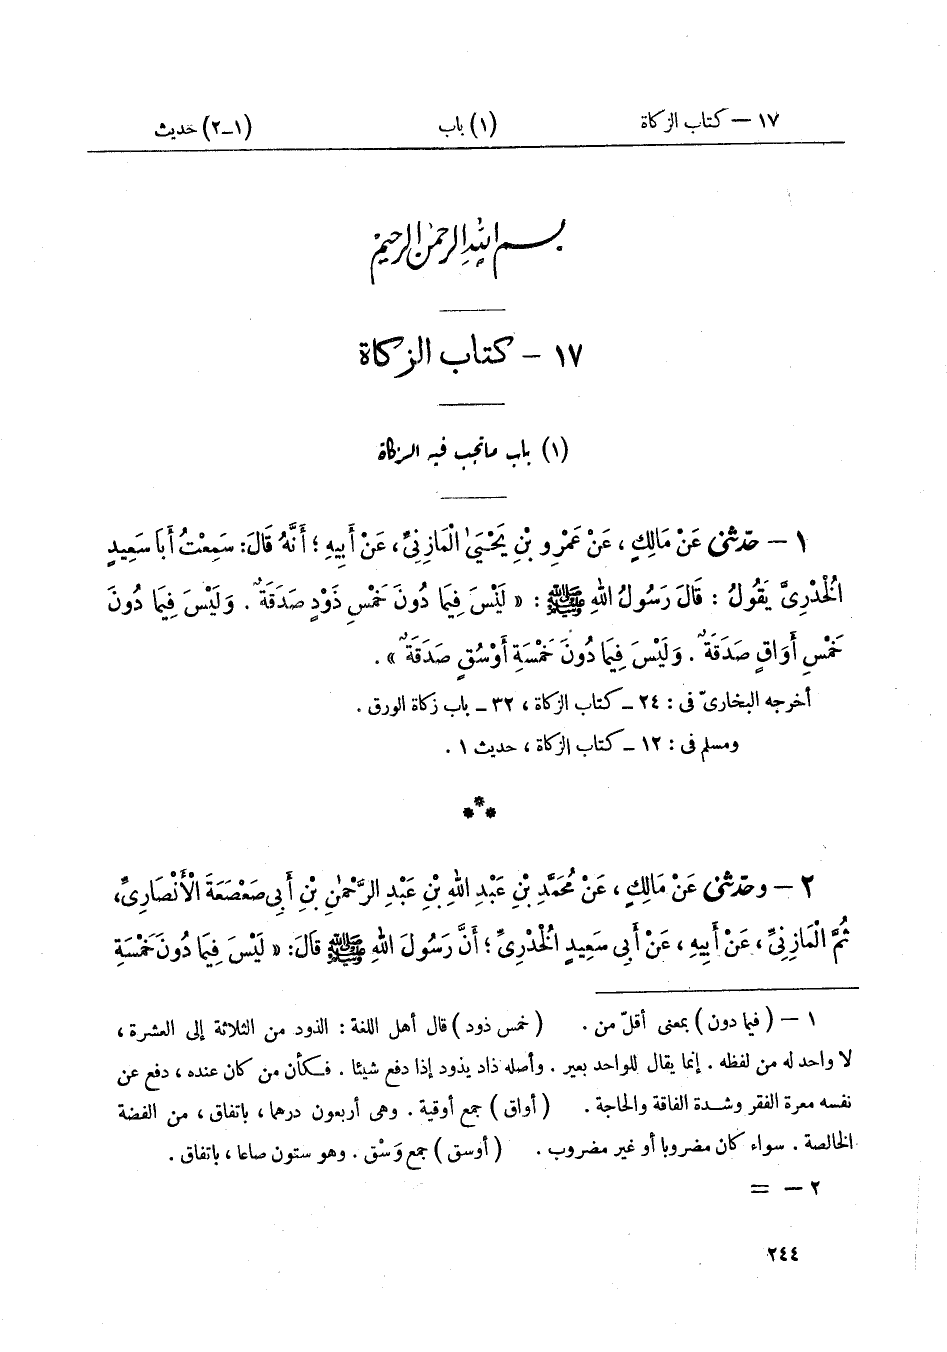 ١٧ — كتاب الزكاة (١) باب (١-٢) حديث
بسم الله الرحمن الرحيم
١٧ - كتاب الزكاة
(١) باب ما تجب فيه الزكاة
١ – حدّثنى عَنْ مَالِكٍ ، عَنْ عَمْرِو بْنِ يَحْيَىٰ الْمَازِنِىِّ، عَنْ أَبِيهِ ؛ أَنَّهُ قَالَ: سَمِعْتُ أَبَا سَعِيدٍ
الْخُدْرِىَّ يَقُولُ : قَالَ رَسُولُ اللهِ ﷺ : « لَيْسَ فِيمَا دُونَ خَمْسِ ذَوْدٍ صَدَقَةٌ . وَلَيْسَ فِيمَا دُونَ
خَمْسِ أَوَاقٍ صَدَقَةٌ . وَلَيْسَ فِيمَا دُونَ خَمْسَةِ أَوْسُقٍ صَدَقَةٌ » .
أخرجه البخارىّ فى : ٢٤ ــ كتاب الزكاة ، ٣٢ ــ باب زكاة الورق .
ومسلم فى : ١٢ ــ كتاب الزكاة ، حديث ١ .
***
٢ – وحدّثنى عَنْ مَالِكٍ ، عَنْ مُحَمَّدِ بْنِ عَبْدِ اللهِ بْنِ عَبْدِ الرَّحْمٰنِ بْنِ أَبِى صَعْصَعَةَ الْأَنْصَارِىِّ،
ثُمَّ الْمَازِنِىِّ ، عَنْ أَبِيهِ ، عَنْ أَبِى سَعِيدٍ الْخُدْرِىِّ ؛ أَنَّ رَسُولَ اللهِ ﷺ قَالَ: « لَيْسَ فِيمَا دُونَ خَمْسَةِ
١ – ( فيما دون ) بمعنى أقلّ من . ( خمس ذود ) قال أهل اللغة : الذود من الثلاثة إلى العشرة ،
لا واحد له من لفظه . إنما يقال للواحد بعير . وأصله ذاد يذود إذا دفع شيئا . فكأن من كان عنده ، دفع عن
نفسه معرة الفقر وشدة الفاقة والحاجة . ( أواق ) جمع أوقية . وهى أربعون درهما ، باتفاق ، من الفضة
الخالصة . سواء كان مضروبا أو غير مضروب . ( أوسق ) جمع وَسْق . وهو ستون صاعا ، باتفاق .
٢ – =
٢٤٤